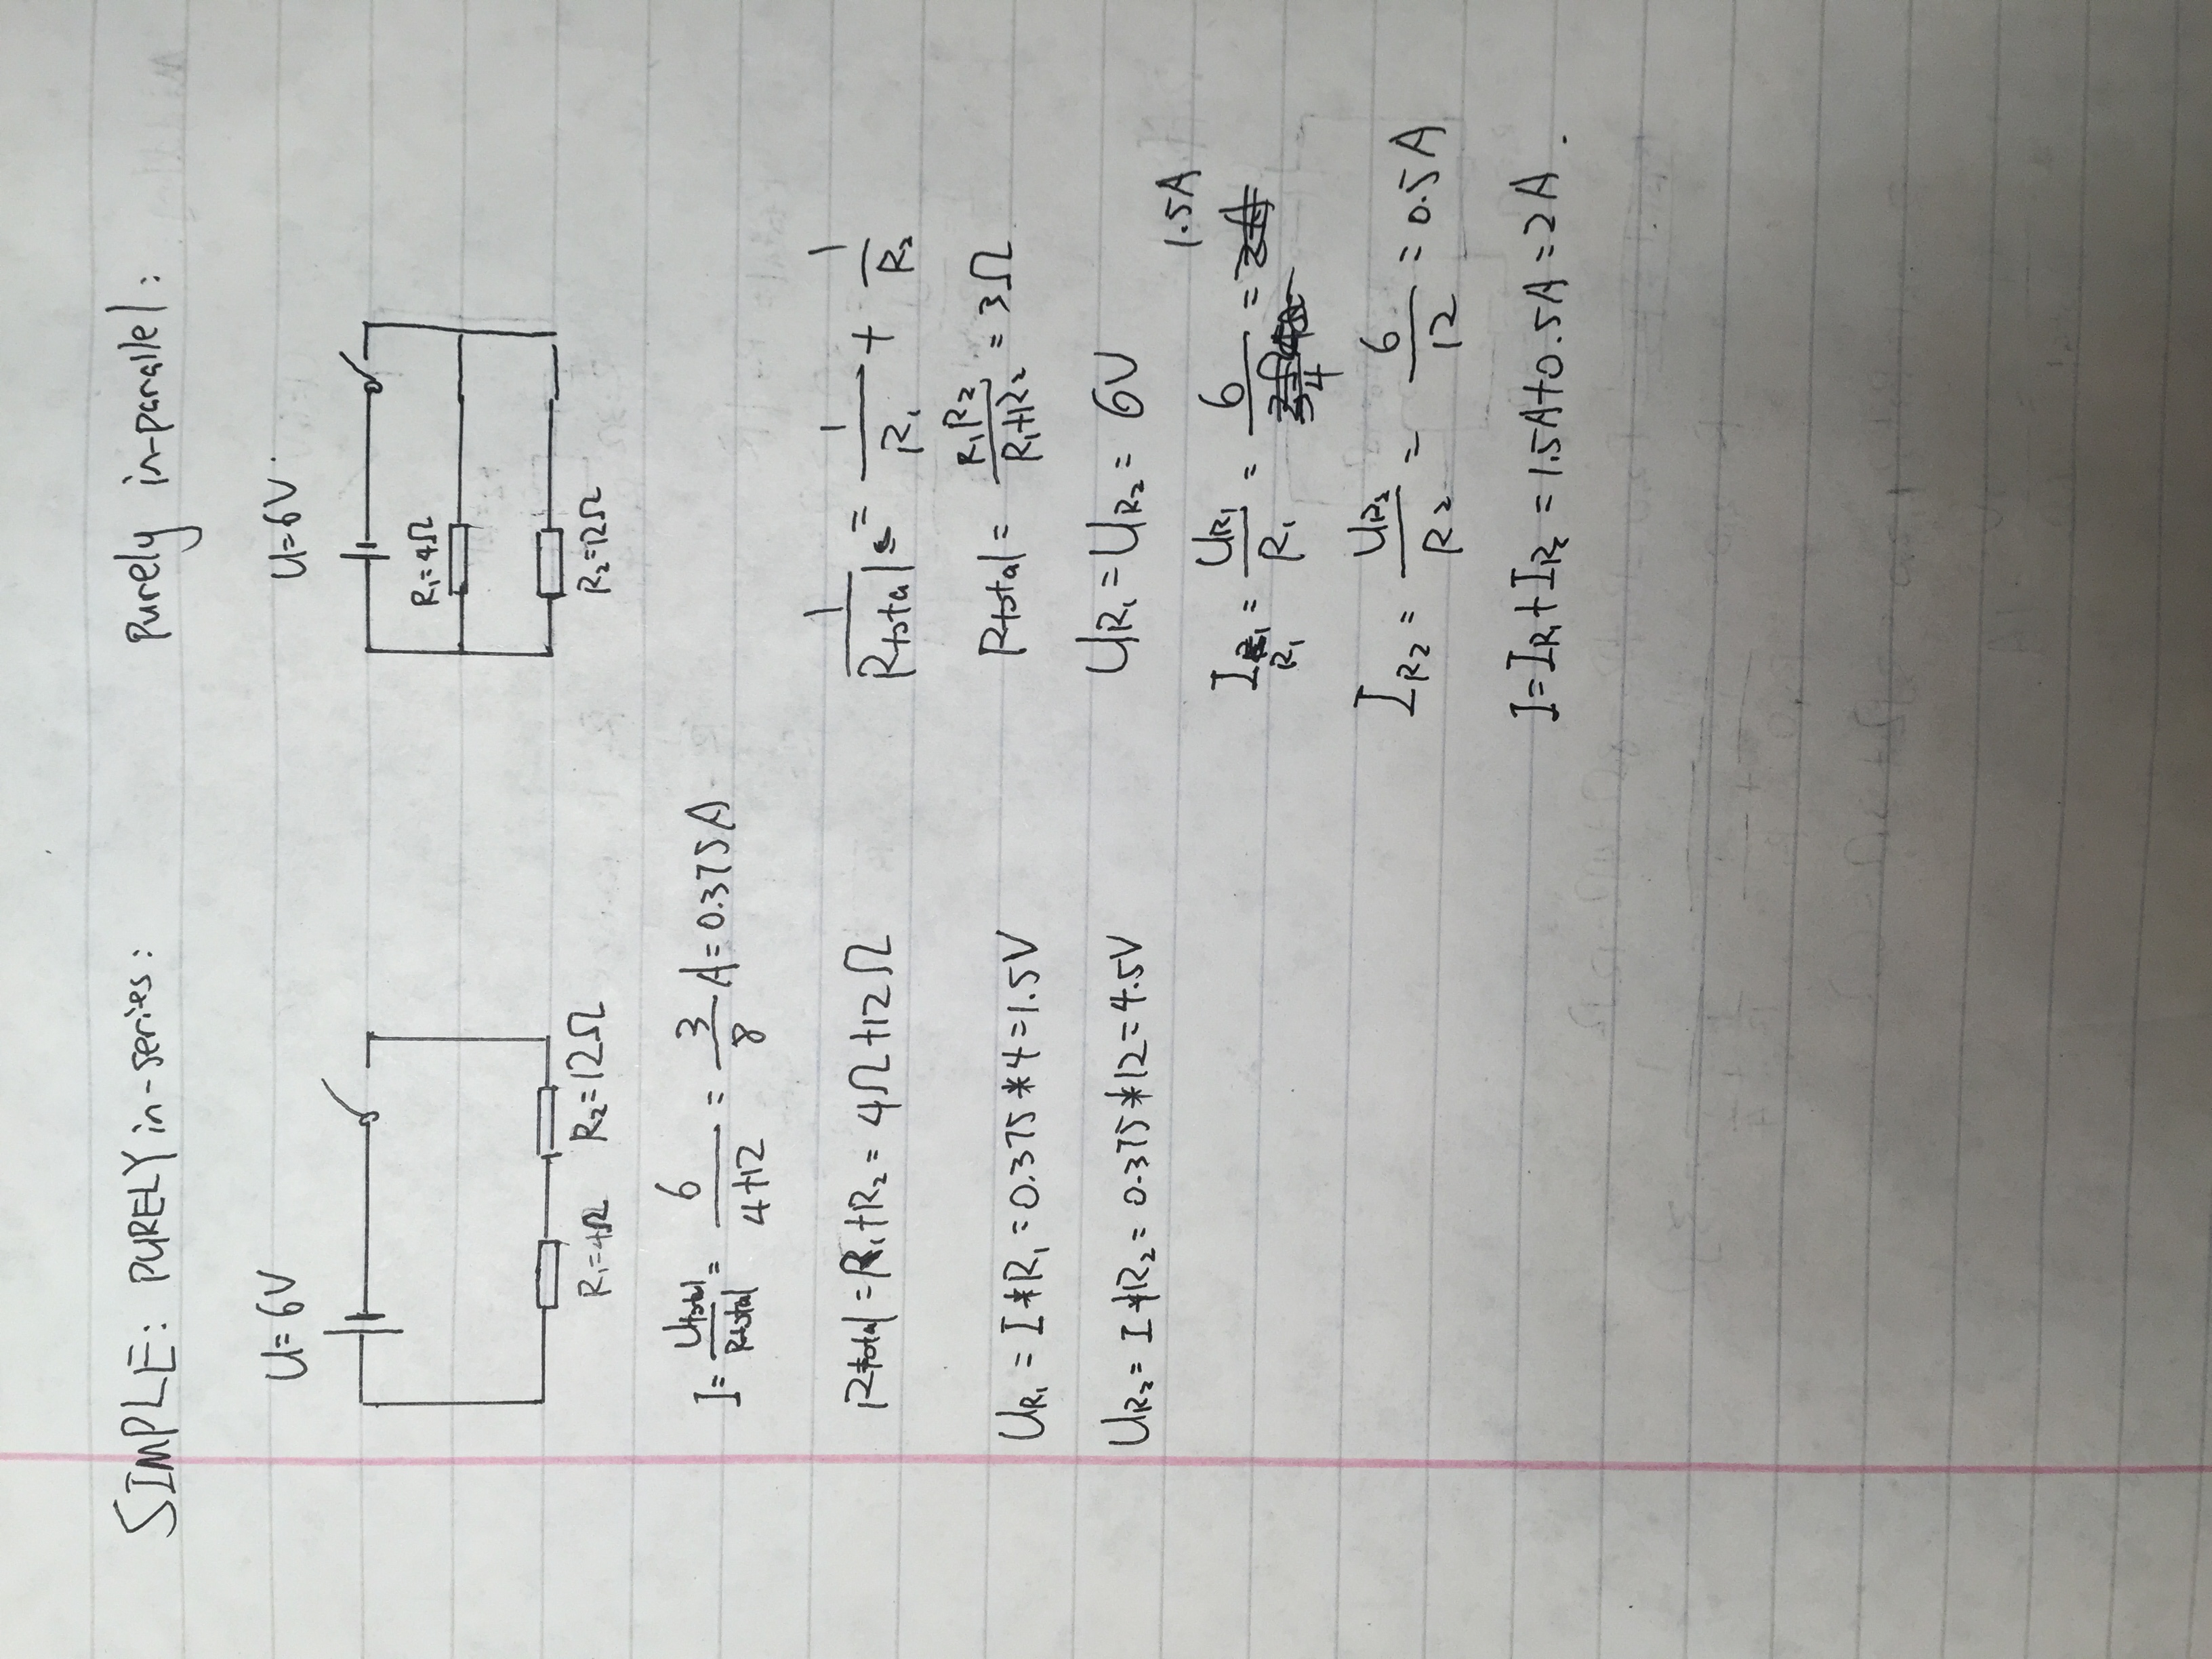 SIMPLE: PURELY in-series:
U=6V
R₁=4Ω
R₂=12Ω
I = Utotal/Rtotal = 6/4+12 = 3/8 A = 0.375A
Rtotal = R₁+R₂ = 4Ω+12Ω
UR₁ = I*R₁ = 0.375*4 = 1.5V
UR₂ = I*R₂ = 0.375*12 = 4.5V
Purely in-parallel:
U=6V.
R₁=4Ω
R₂=12Ω
1/Rtotal = 1/R₁ + 1/R₂
Rtotal = R₁R₂/R₁+R₂ = 3Ω
UR₁ = UR₂ = 6V
IR₁ = UR₁/R₁ = 6/4 = 1.5A
IR₂ = UR₂/R₂ = 6/12 = 0.5A
I = IR₁+IR₂ = 1.5A+0.5A = 2A.